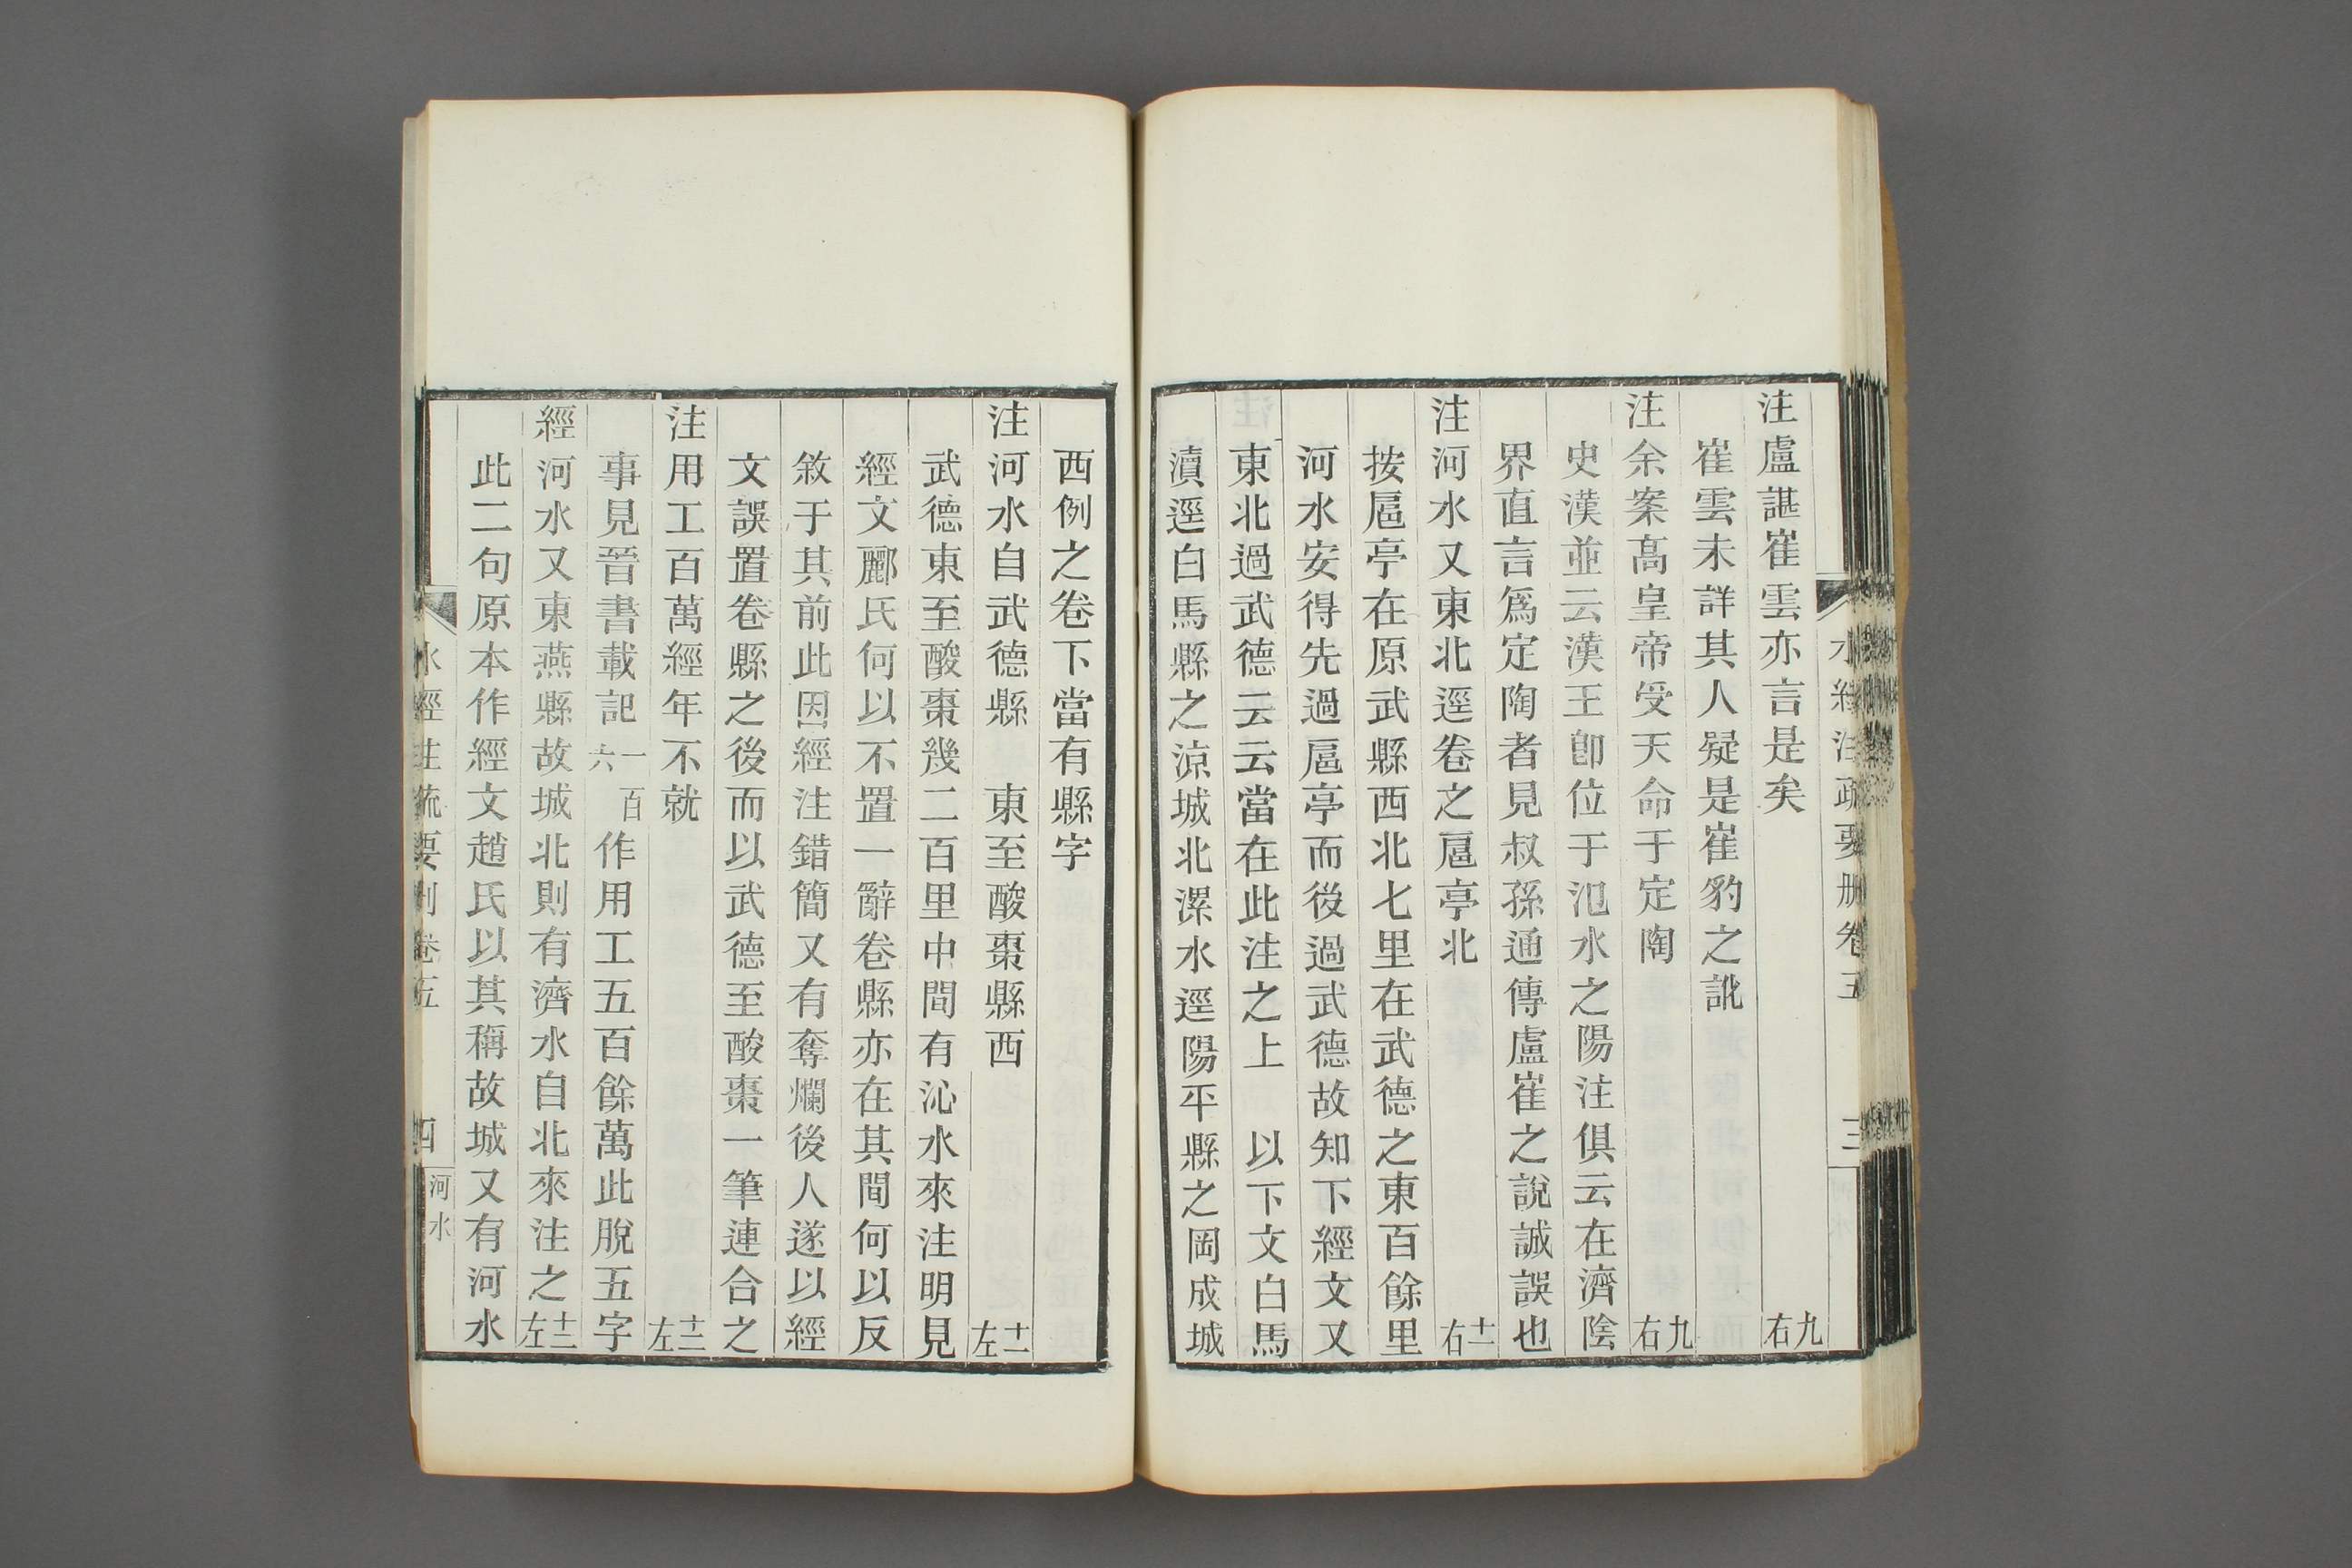 水經注疏要刪卷五 三
注盧諶崔雲亦言是矣 九右
崔雲未詳其人疑是崔豹之訛
注余案高皇帝受天命于定陶 九右
史漢並云漢王卽位于氾水之陽注俱云在濟陰
界直言爲定陶者見叔孫通傳盧崔之說誠誤也
注河水又東北逕卷之扈亭北 十一右
按扈亭在原武縣西北七里在武德之東百餘里
河水安得先過扈亭而後過武德故知下經文又
東北過武德云云當在此注之上 以下文白馬
瀆逕白馬縣之涼城北漯水逕陽平縣之岡成城
西例之卷下當有縣字
注河水自武德縣 東至酸棗縣西 十一左
武德東至酸棗幾二百里中間有沁水來注明見
經文酈氏何以不置一辭卷縣亦在其間何以反
敘于其前此因經注錯簡又有奪爛後人遂以經
文誤置卷縣之後而以武德至酸棗一筆連合之
注用工百萬經年不就 十二左
事見晉書載記一百六作用工五百餘萬此脫五字
經河水又東燕縣故城北則有濟水自北來注之 十二左
此二句原本作經文趙氏以其稱故城又有河水
水經注疏要刪卷五 四 河水